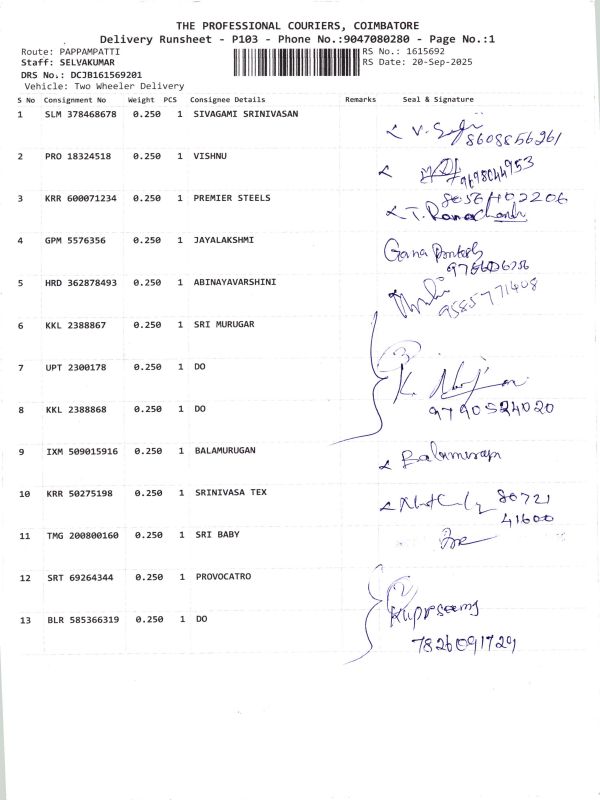 THE PROFESSIONAL COURIERS, COIMBATORE
Delivery Runsheet - P103 - Phone No.:9047080280 - Page No.:1
Route: PAPPAMPATTI RS No.: 1615692
Staff: SELVAKUMAR RS Date: 20-Sep-2025
DRS No.: DCJB161569201
Vehicle: Two Wheeler Delivery
S No Consignment No Weight PCS Consignee Details Remarks Seal & Signature
1 SLM 378468678 0.250 1 SIVAGAMI SRINIVASAN
8608856261
2 PRO 18324518 0.250 1 VISHNU
9698044953
3 KRR 600071234 0.250 1 PREMIER STEELS
T. Ramachandr
4 GPM 5576356 0.250 1 JAYALAKSHMI
Gana
5 HRD 362878493 0.250 1 ABINAYAVARSHINI
9585771408
6 KKL 2388867 0.250 1 SRI MURUGAR
3
7 UPT 2300178 0.250 1 DO
K.
8 KKL 2388868 0.250 1 DO
9790524020
9 IXM 509015916 0.250 1 BALAMURUGAN
Balamurugn
10 KRR 50275198 0.250 1 SRINIVASA TEX
80721
41600
11 TMG 200800160 0.250 1 SRI BABY
12 SRT 69264344 0.250 1 PROVOCATRO
2
13 BLR 585366319 0.250 1 DO
7826091729